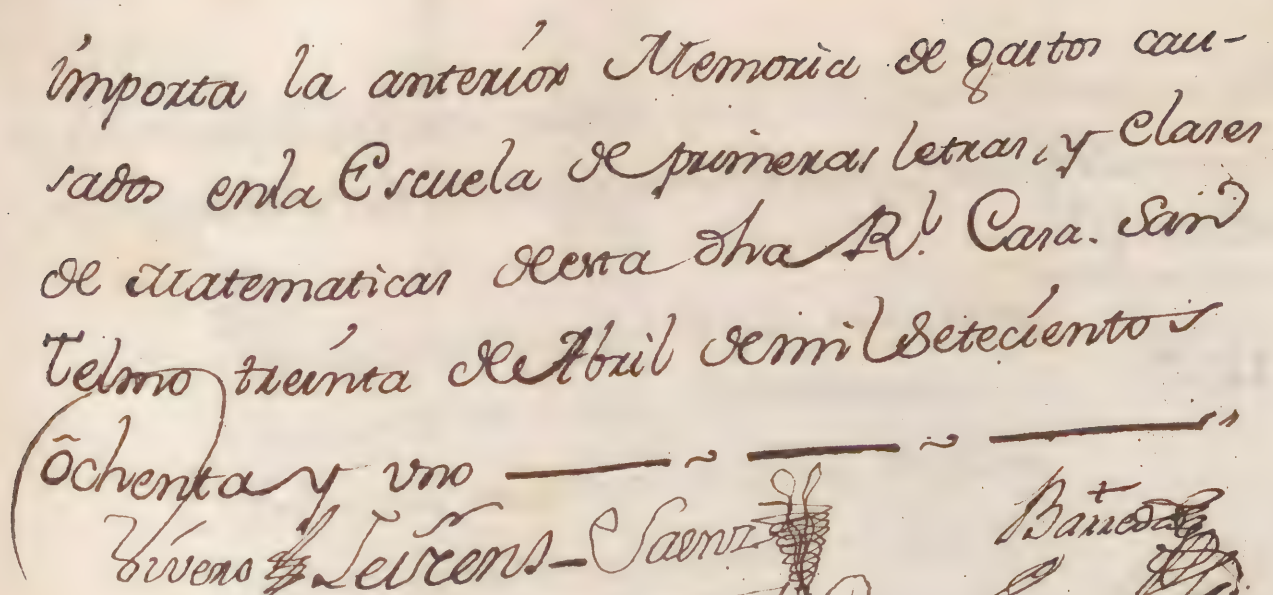 importa la anterior Memoria de gastos cau-
sados enla Escuela de primeras letras, y Clases
de Matematicas desta dha Rl. Casa. San
Telmo treinta de Abril demil Setecientos
õchenta y vno
Vivero Leirens Saenz Barreda